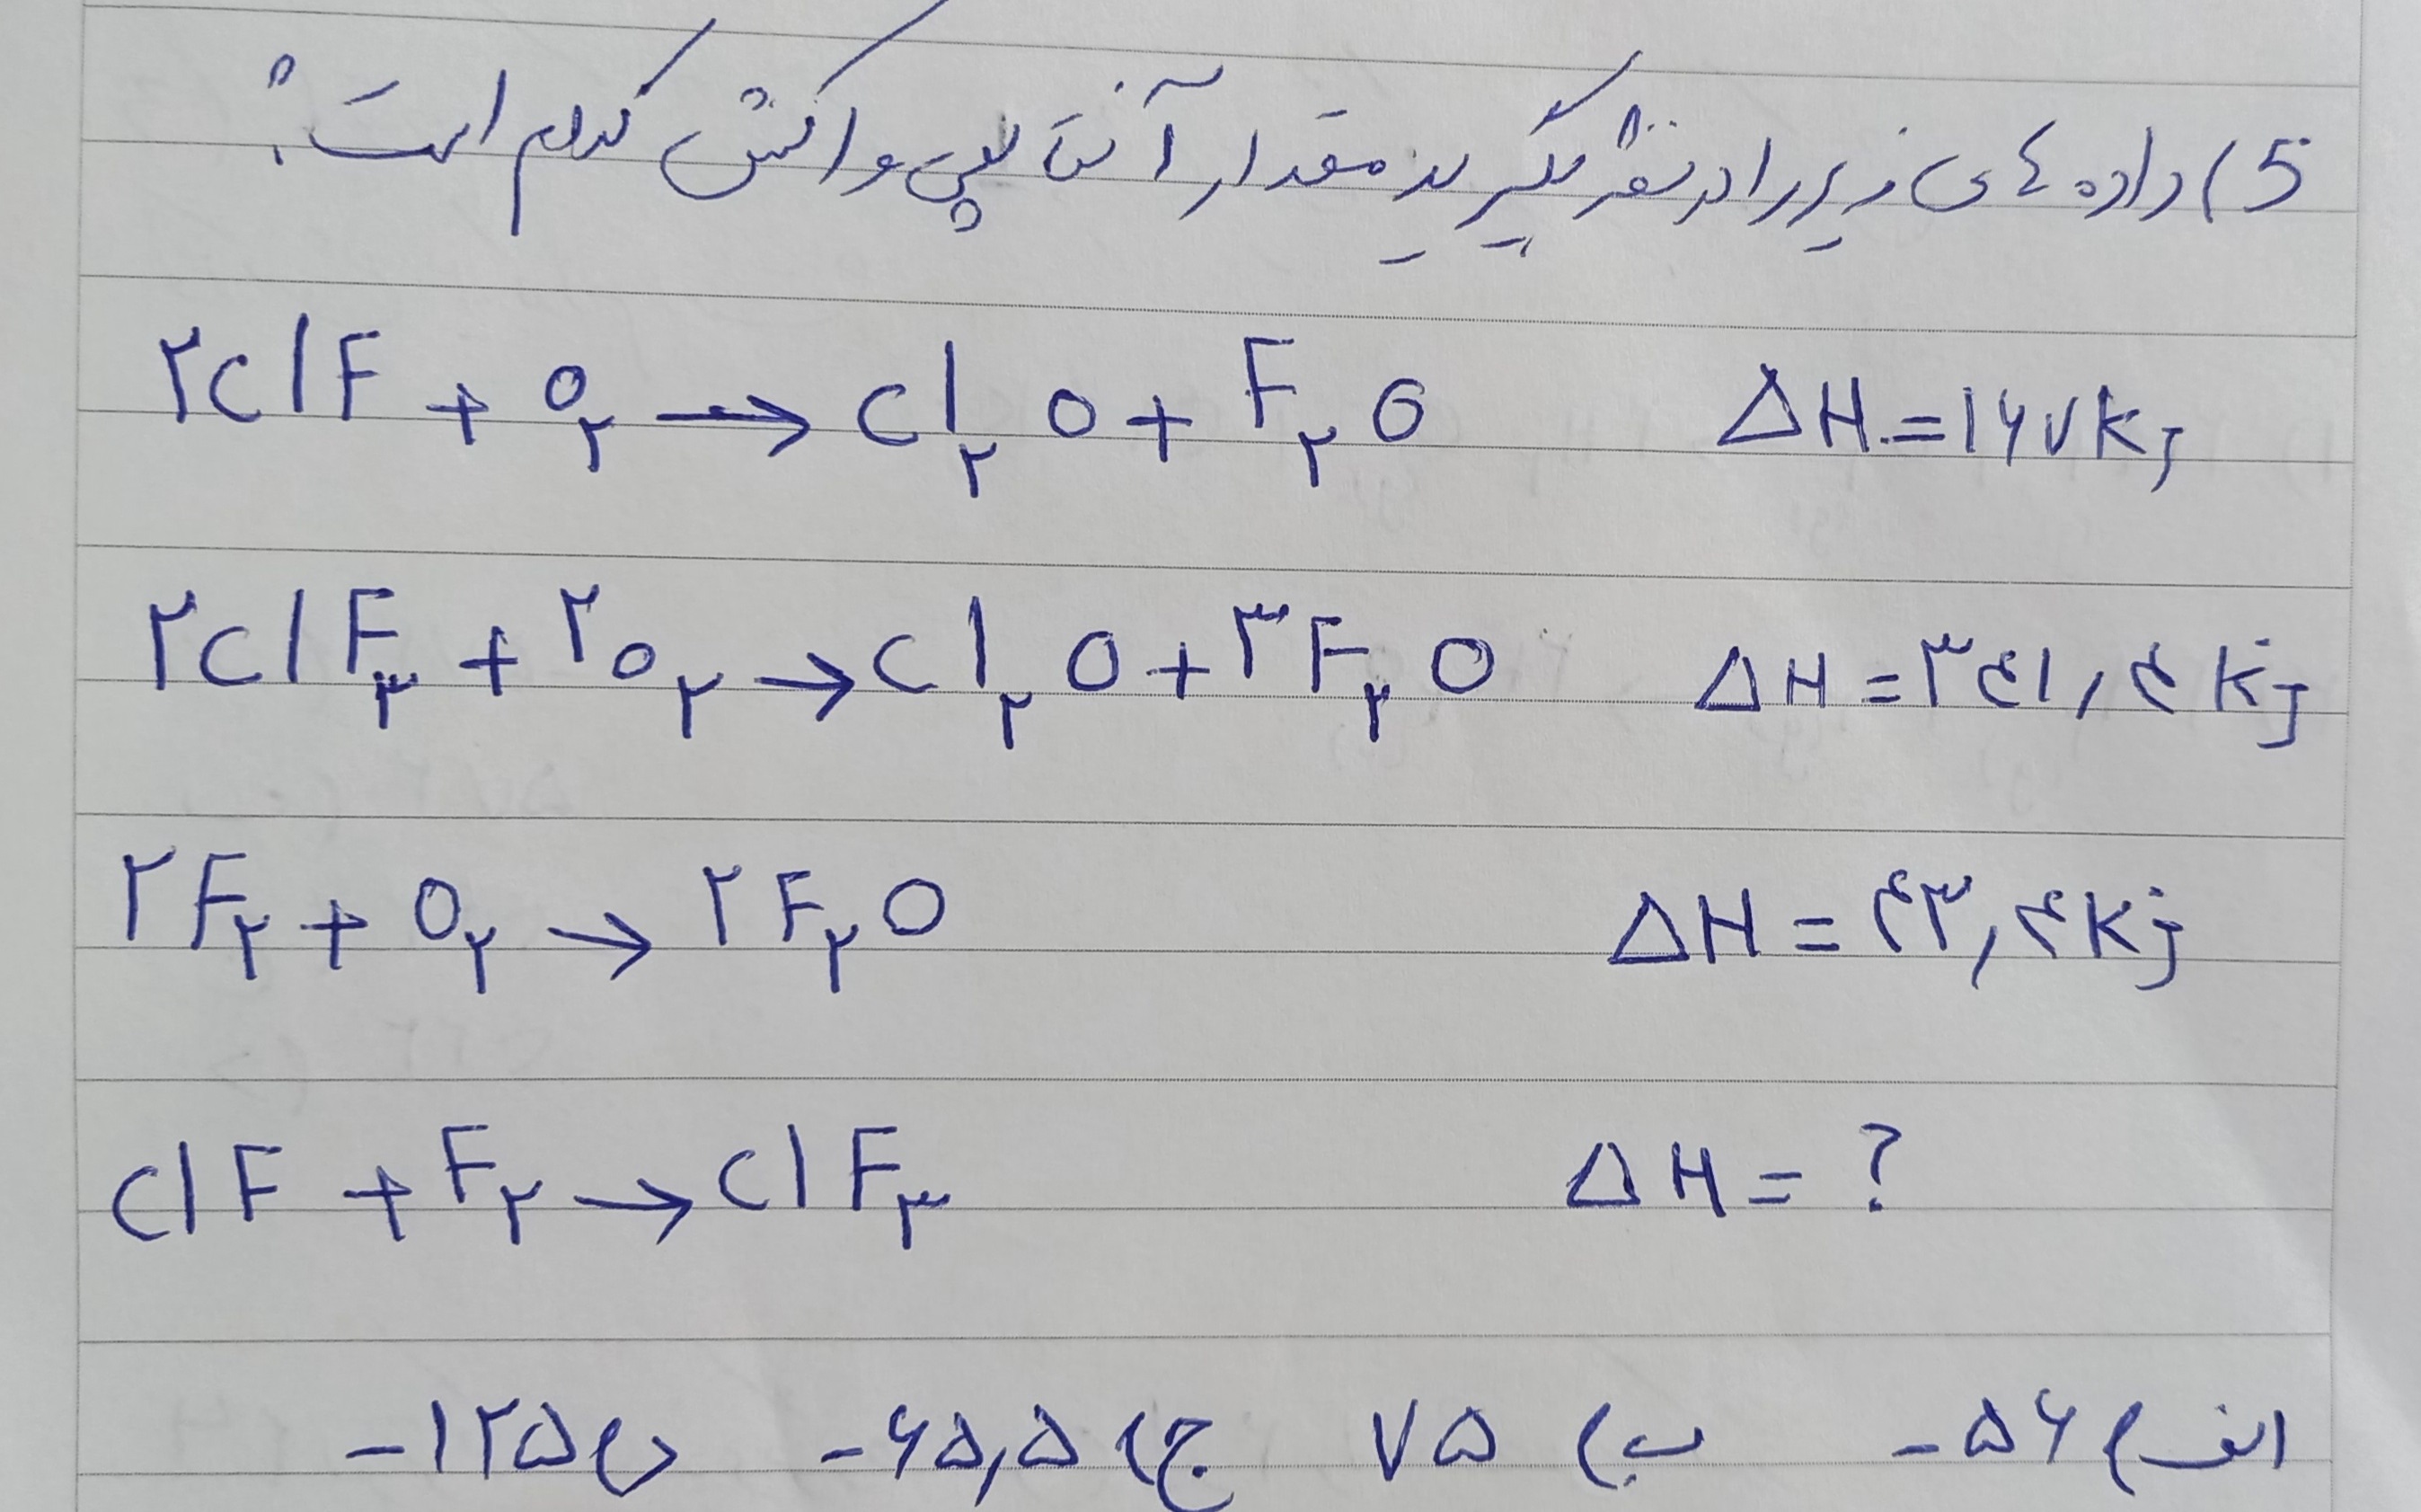 5) داده های زیر را در نظر بگیرید مقدار آنتالپی واکنش کدام است؟
۲ClF + O₂ → Cl₂O + F₂O ΔH = ۱۶۷ kj
۲ClF₃ + ۲O₂ → Cl₂O + ۳F₂O ΔH = ۳۴۱,۴ kj
۲F₂ + O₂ → ۲F₂O ΔH = ۴۳,۴ kj
ClF + F₂ → ClF₃ ΔH = ?
الف) ۵۶- ب) ۷۵ ج) ۶۵,۵- د) ۱۲۵-